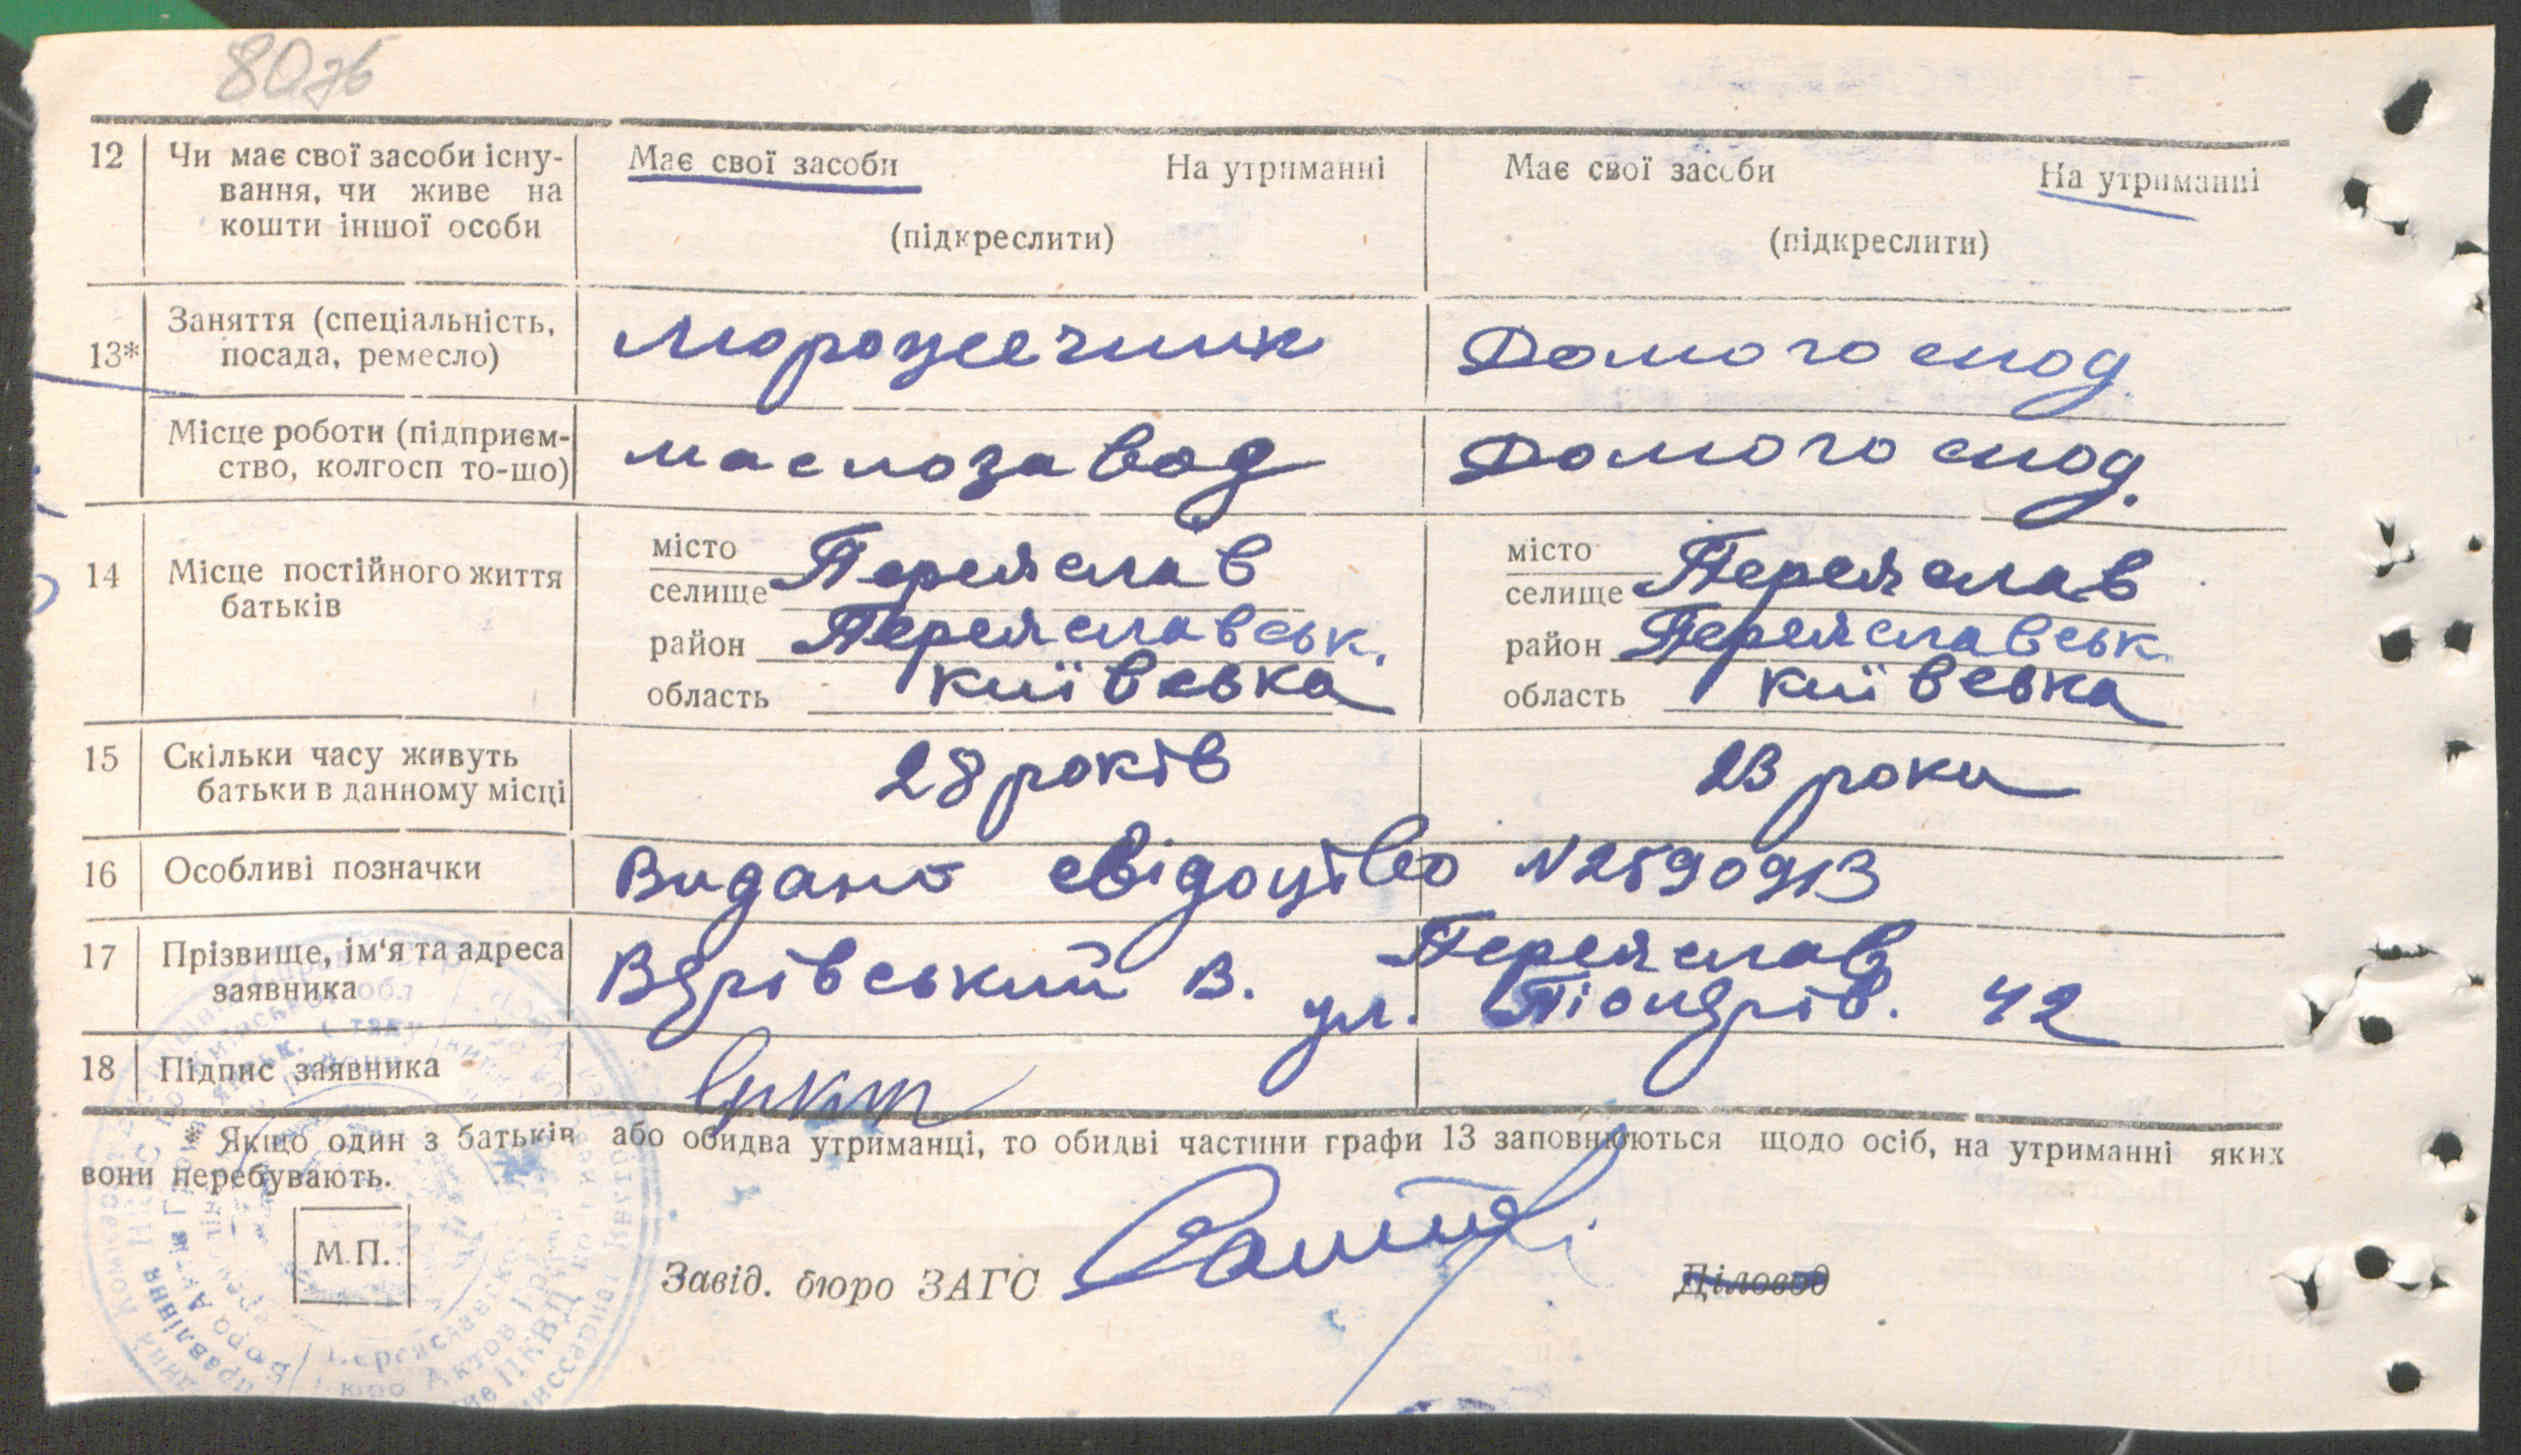 80зв
12 Чи має свої засоби існу- Має свої засоби На утриманні Має свої засоби На утриманні
вання, чи живе на
кошти іншої особи (підкреслити) (підкреслити)
13* Заняття (спеціальність, Морожечник Домогоспод.
посада, ремесло)
Місце роботи (підприєм- маслозавод Домогоспод.
ство, колгосп то-що)
14 Місце постійного життя місто Переяслав місто Переяслав
батьків селище селище
район Переяславськ. район Переяславськ.
область Київська область Київська
15 Скільки часу живуть 28 років 23 роки
батьки в данному місці
16 Особливі позначки Видано свідоцтво N2590913
17 Прізвище, ім'я та адреса В. Переяслав
заявника ул. Піонерів. 42
18 Підпис заявника
* Якщо один з батьків або обидва утриманці, то обидві частини графи 13 заповнюються щодо осіб, на утриманні яких
вони перебувають.
М.П.
Завід. бюро ЗАГС Діловод